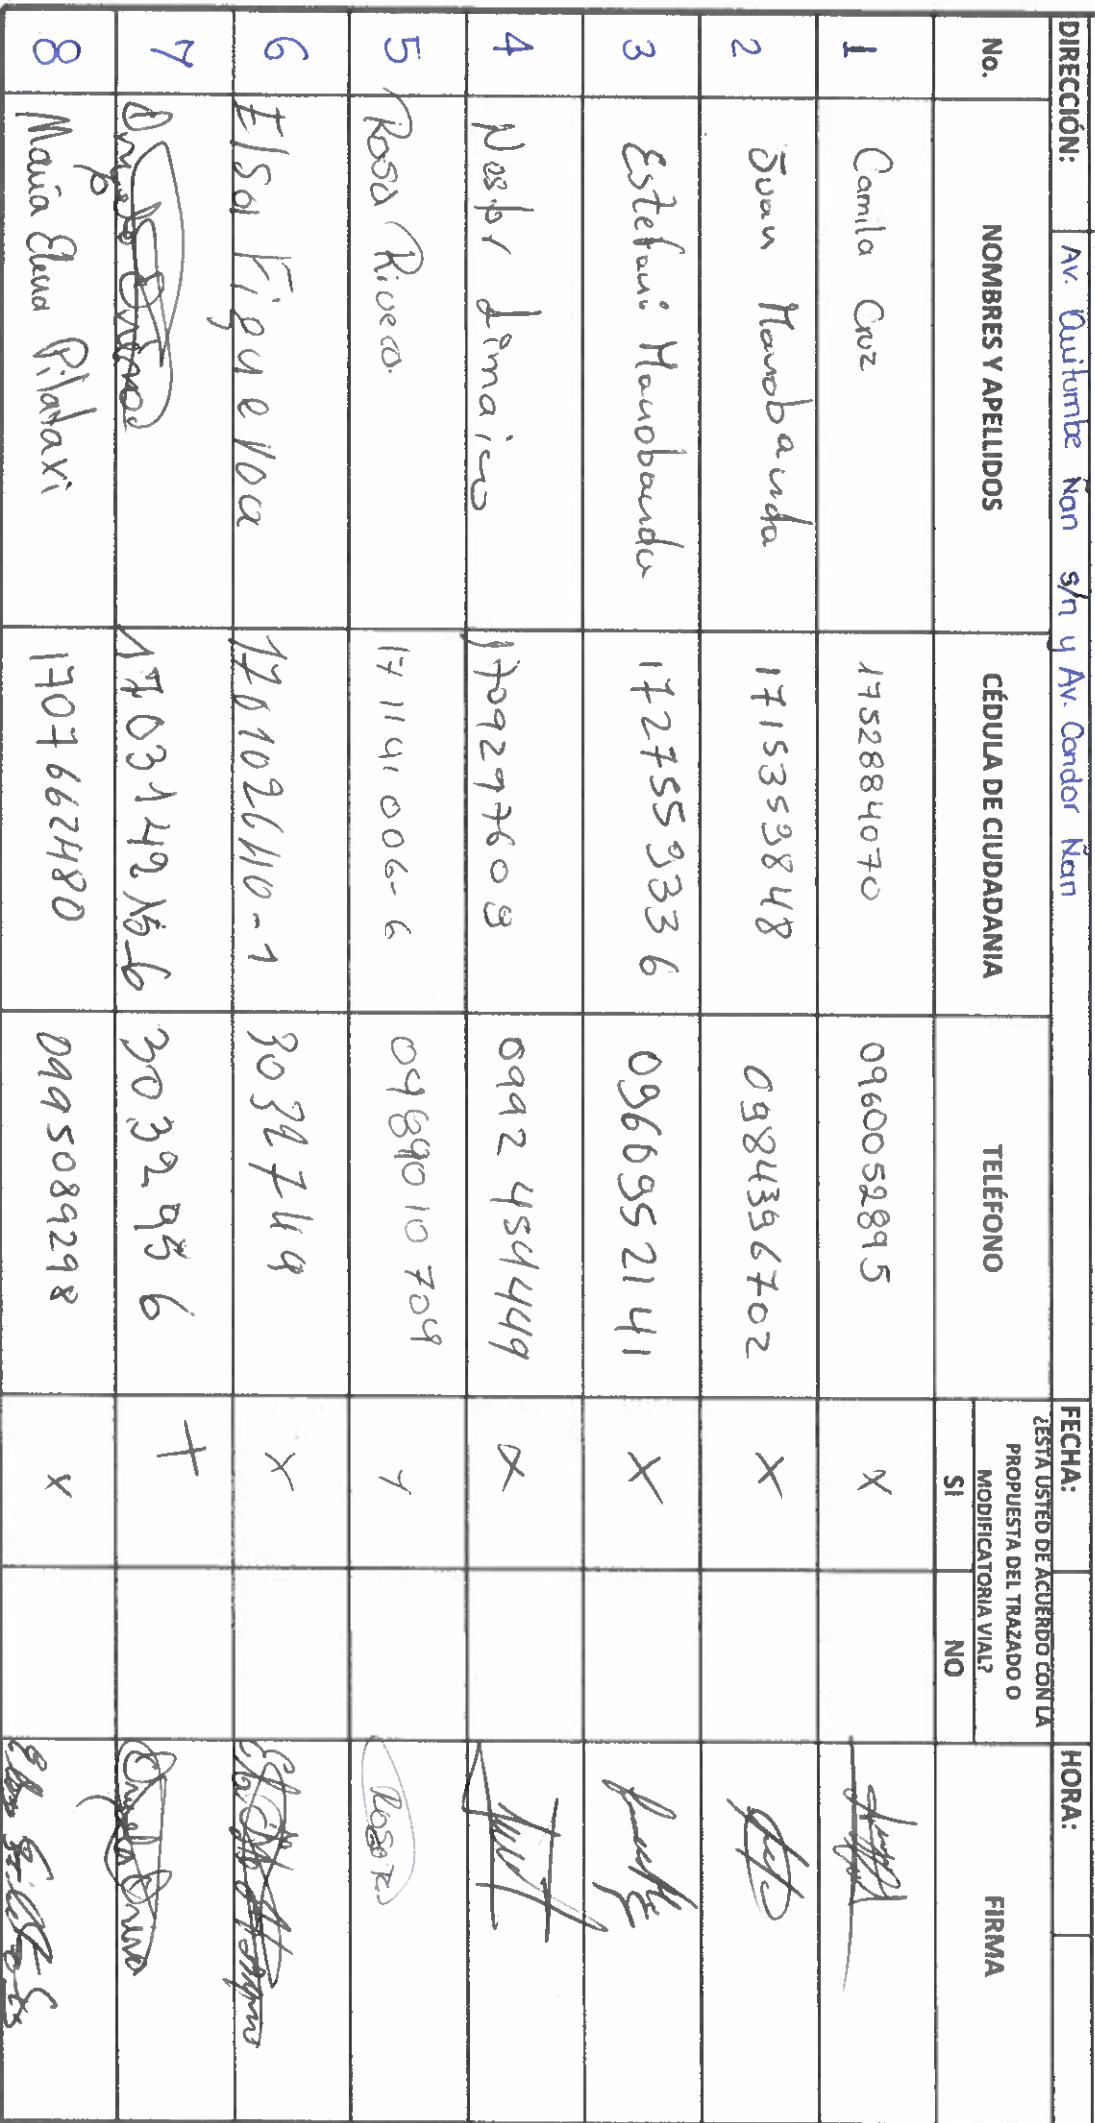 DIRECCIÓN: Av. Quitumbe Ñan s/n y Av. Condor Ñan FECHA: HORA:
No. NOMBRES Y APELLIDOS CÉDULA DE CIUDADANIA TELÉFONO ¿ESTÁ USTED DE ACUERDO CON LA PROPUESTA DEL TRAZADO O MODIFICATORIA VIAL? FIRMA
SI NO
1 Camila Cruz 1752884070 0960052895 X
2 Juan Manobanda 1715353848 0984396702 X
3 Estefani Manobanda 1727559336 0969952141 X
4 Nestor Limaico 1709297608 0992454449 X
5 Rosa Rivera 171141006-6 0989010704 X Rosa R
6 Elsa Figueroa 170102610-1 3032749 X
7 3032956 X
8 Maria Elena Pilataxi 1707662480 0995089298 X